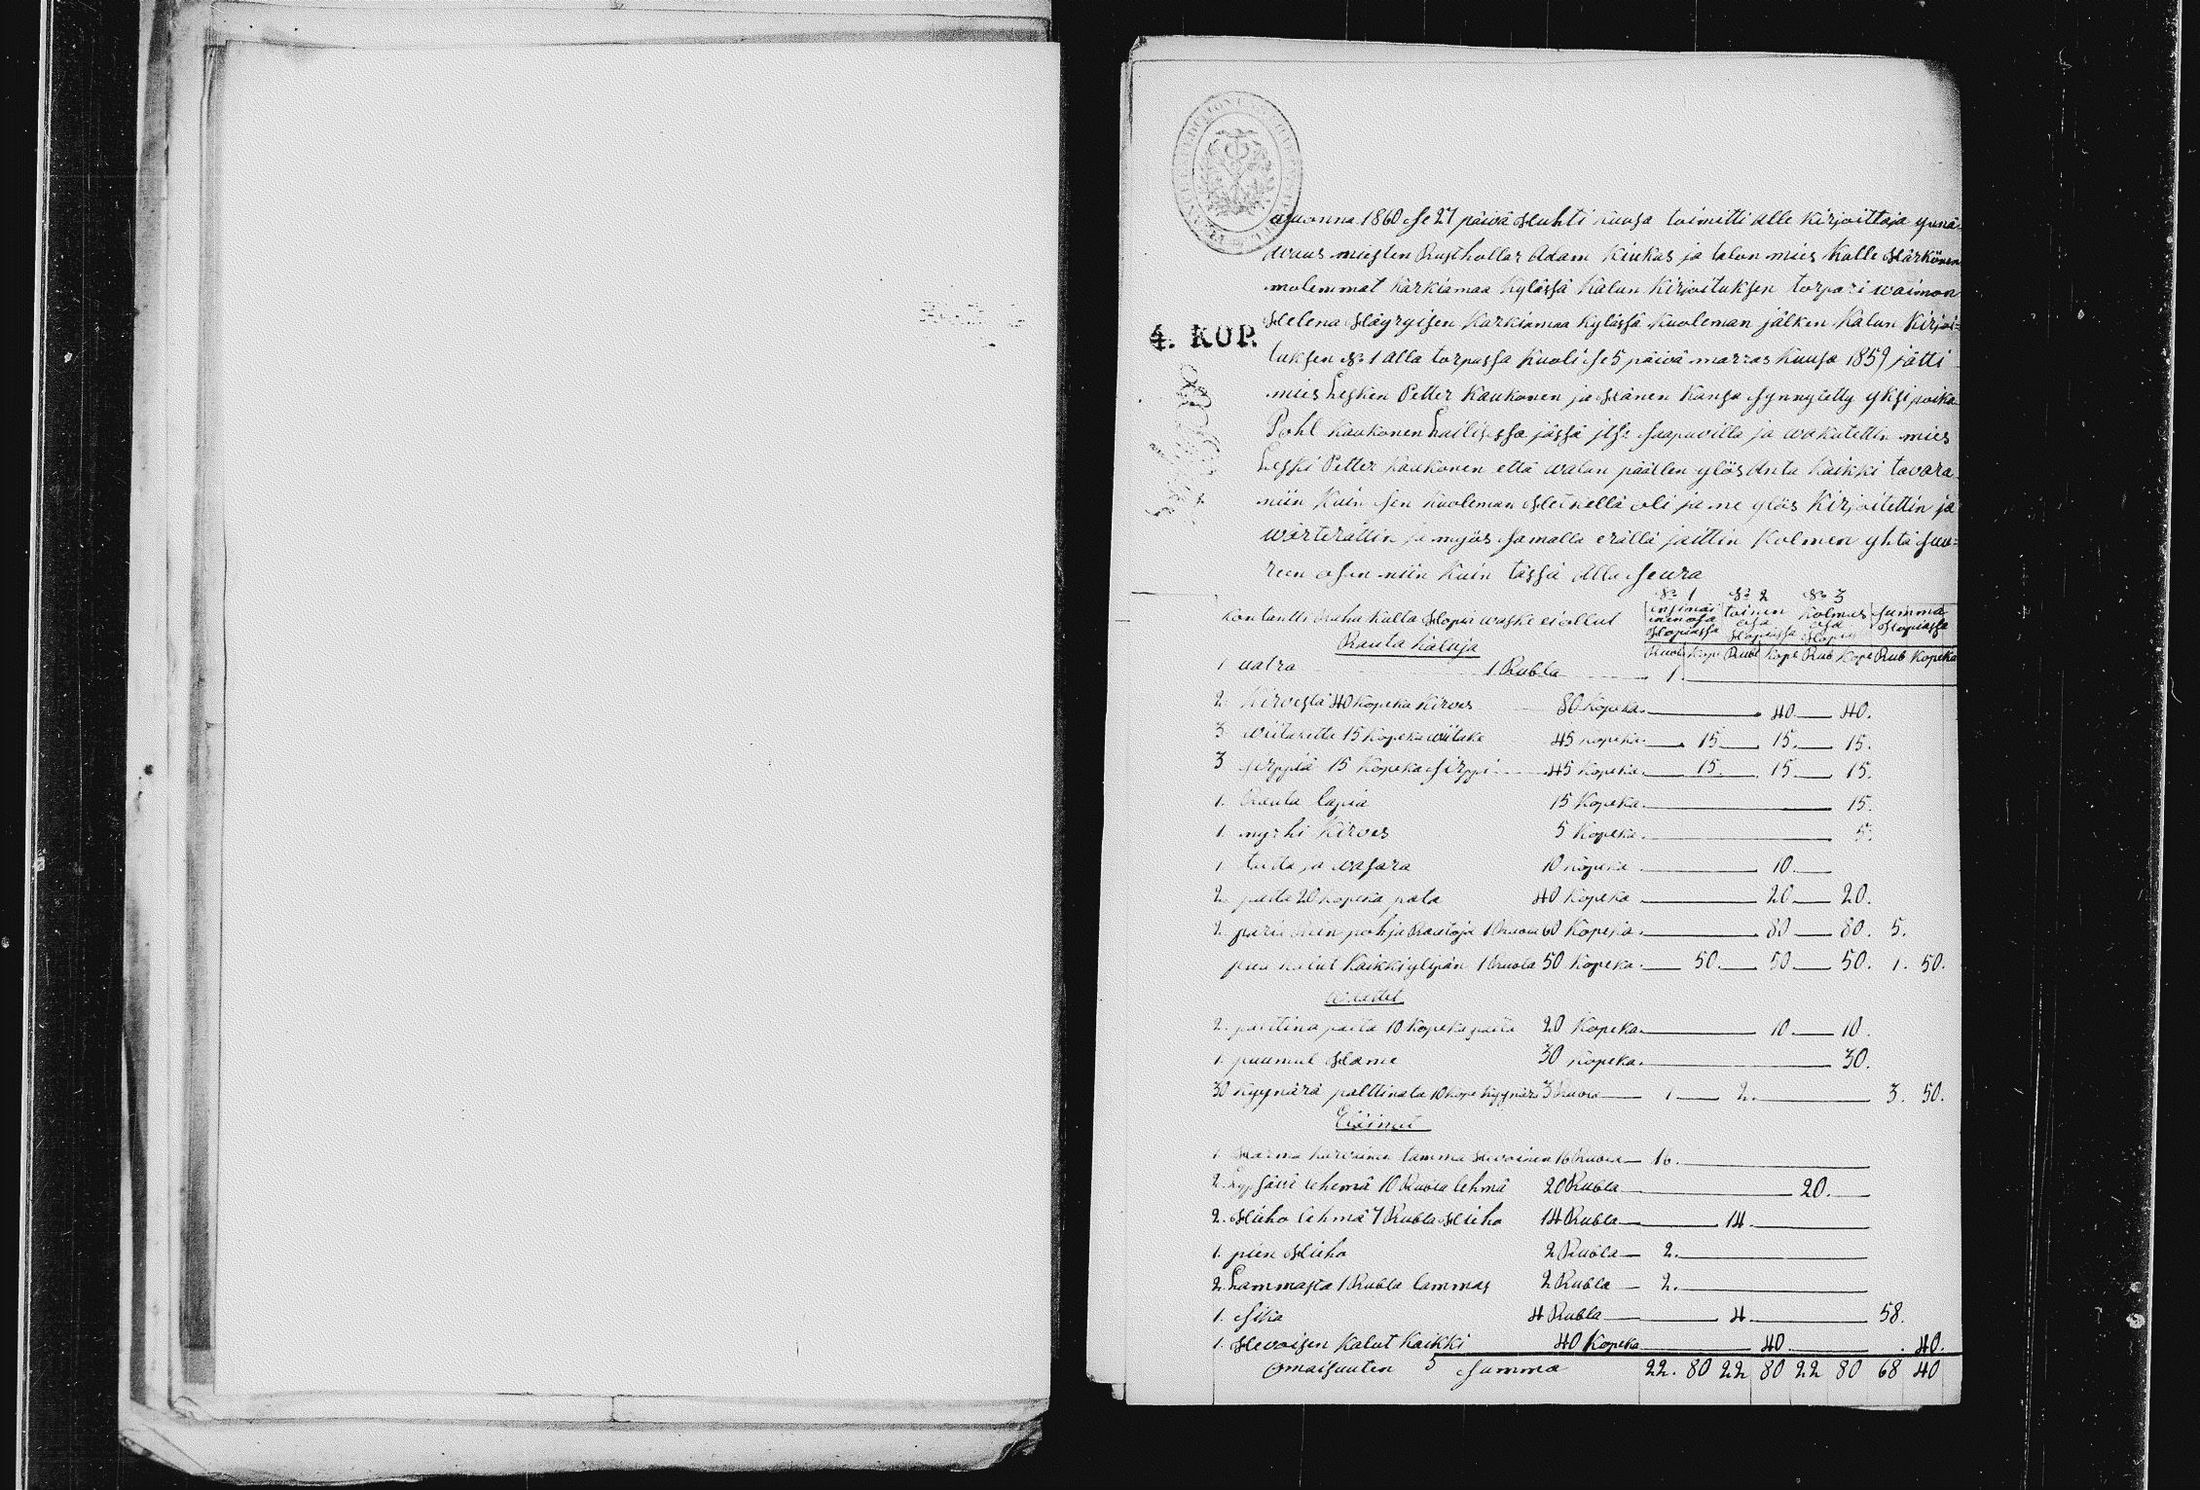 wuonna 1860 se 27 päivä Huhti kuusa toimitti alle kirjoittaja ynnä
wuus miesten Rusthollar Adam Kiukas ja talon mies Kalle Härkönen
molemmat Karkiamaa kylässä kalun kirjoituksen torpari waimon
Helena Häyryisen Karkiamaa kylässä kuoleman jälken kalun kirjoi=
4. KOP.
tuksen No 1 alla torpassa kuoli se 5 päivä marras kuusa 1859 jätti
mies Lesken Petter Kaukonen ja Hänen kansa synnytetty yksi poika
Pohl Kaukonen jässä itse saapuvilla ja wakutettin mies
Leski Petter Kaukonen että walan päällen ylös Anta kaikki tavara
niin kuin sen kuoleman Hetkellä oli ja ne ylös kirjoitettin ja
wärterättin ja myös samalla erällä jaittin kolmen yhtä suu=
reen osan niin kuin tässä alla seura
No 1 No 2 No 3
kontantti Raha kulta Hopia waski ei ollut
ensimäi toinen kolmas summa
osa osa
Hopiassa Hopiassa Hopia Hopiassa
Rauta kaluja
Rubl kope Rubl kope Rub kope Rub kopeka
1 1 Rubla 1.
2. kirvestä 40 kopeka kirves 80 kopeka 40 40.
3 wiitaketta 15 kopeka wiitake 45 kopeka 15 15. 15.
3 sirppiä 15 kopeka sirppi 45 kopeka 15. 15. 15.
1. Rauta lapia 15 kopeka 15.
1. myrhi kirves 5 kopeka 5.
1. ja wasara 10 kopeka 10.
2. pata 20 kopeka pata 40 kopeka 20 20.
2. paria pohja Rautoja 1 Rubla 60 kopeka 80 80. 5.
puu kalut kaikki ylipän 1 Rubla 50 kopeka 50. 50 50. 1. 50.
waattet
2. paltina paita 10 kopeka paita 20 kopeka 10 10.
1. puumul Hame 30 kopeka 30.
30 kyynärä palttinata 10 kope kyynärä 3 Rubla 1 2. 3. 50.
Eläimet
1. Harma karvainen tamma Hevoinen 16 Rubla 16.
2. Lypsävä lehemä 10 Rubla lehmä 20 Rubla 20.
2. Hieho lehmä 7 Rubla Hieho 14 Rubla 14.
1. pien Hieho 2 Rubla 2.
2. Lammasta 1 Rubla lammas 2 Rubla 2.
1. sika 4 Rubla 4. 58.
1. Hevoisen kalut kaikki 40 kopeka 40 40.
Omaisuuten summa 22. 80 22 80 22 80 68 40